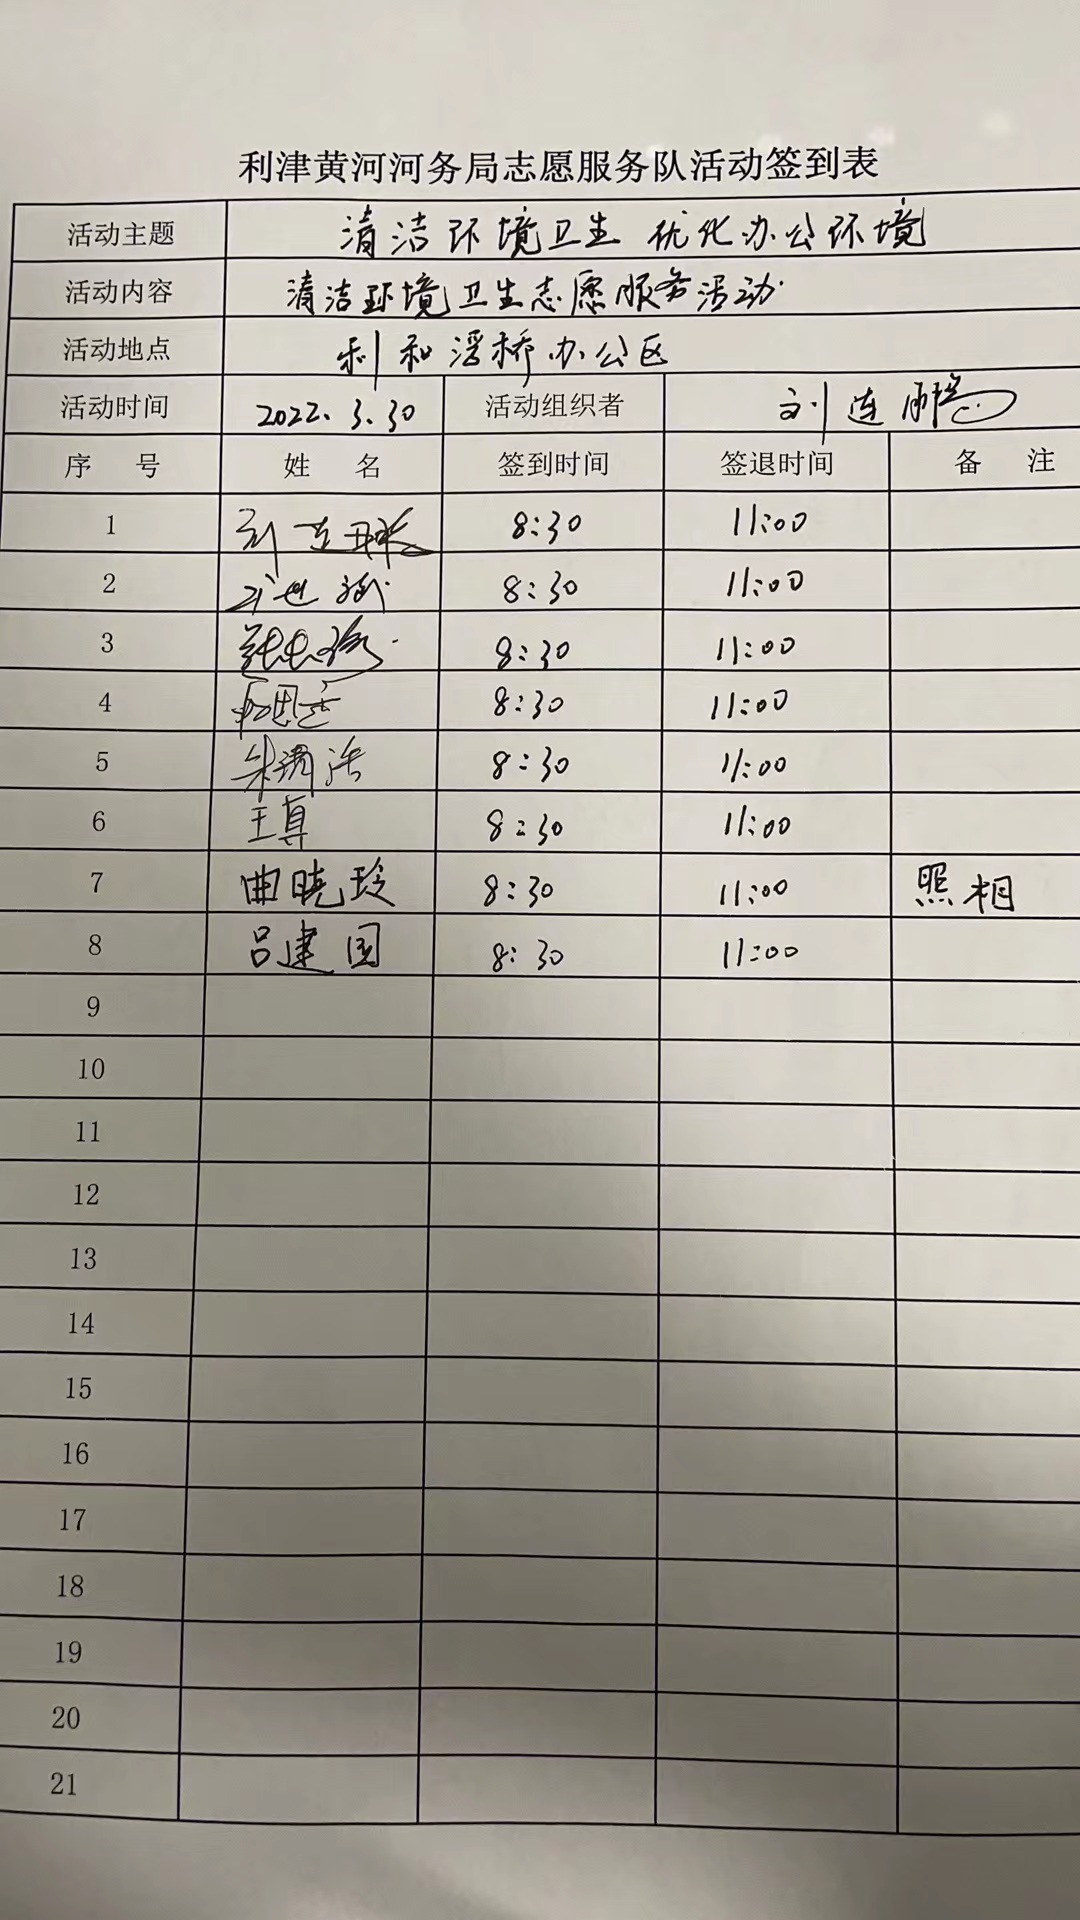 利津黄河河务局志愿服务队活动签到表
活动主题 清洁环境卫生 优化办公环境
活动内容 清洁环境卫生志愿服务活动
活动地点 利和浮桥办公区
活动时间 2022.3.30 活动组织者 刘连鹏
序号 姓名 签到时间 签退时间 备注
1 刘连鹏 8:30 11:00
2 8:30 11:00
3 8:30 11:00
4 8:30 11:00
5 8:30 11:00
6 王真 8:30 11:00
7 曲晓玲 8:30 11:00 照相
8 吕建国 8:30 11:00
9
10
11
12
13
14
15
16
17
18
19
20
21